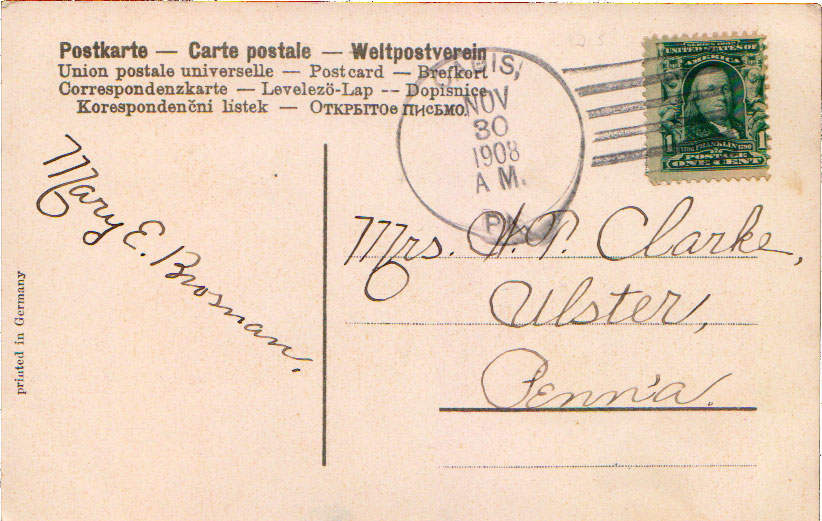 Postkarte — Carte postale — Weltpostverein
Union postale universelle — Postcard — Brefkort
Correspondenzkarte — Levelező-Lap -- Dopisnice
Korespondenčni listek — Открытое письмо.
NOV
30
1908
A M.
PA.
SERIES 1902
UNITED STATES OF
AMERICA
1 FRANKLIN 1
POSTAGE
ONE CENT
Mary E. Brosnan.
Mrs. H. P. Clarke,
Ulster,
Penn'a.
printed in Germany